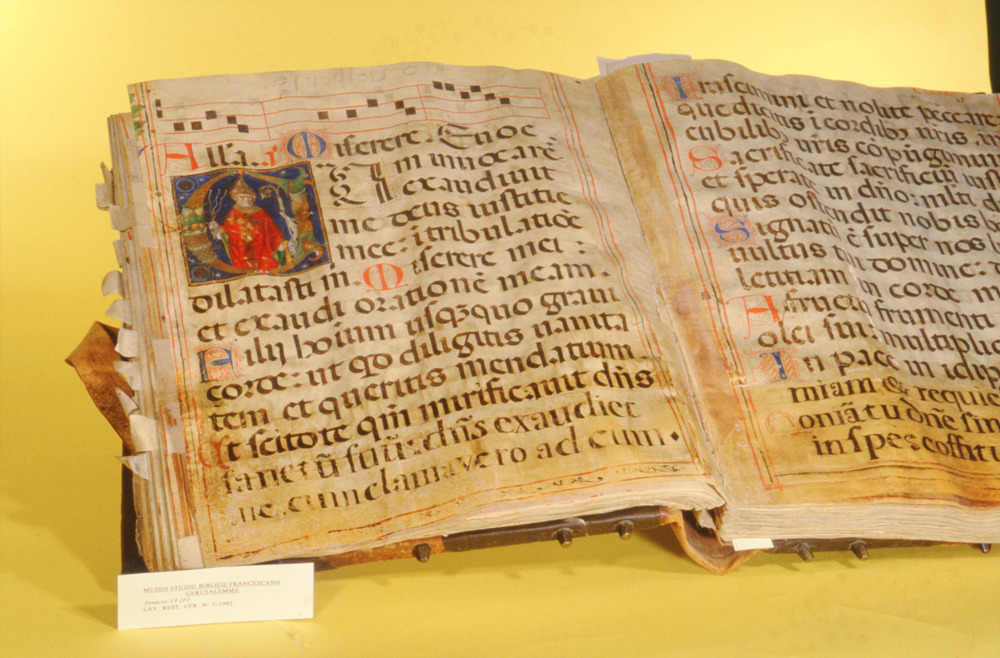 Alla. Miserere. Euoe.
In inuocarē
exaudiuit
me deus iustitie
mee: i tribulatiōe
dilatasti m. Miserere mei:
et exaudi orationē meam.
Filij hoīum usqzquo graui
corde: ut qd diligitis uanita
tem et queritis mendatium
Et scitote qm mirificauit dn̄s
sanctū suū: dn̄s exaudiet
me cum clamavero ad eum.
Irascimini et nolite peccare
que dicitis i cordibz uris
cubilibz uris cōpūgimini
Sacrificate sacrificiū
et sperate in dn̄o: mlti
quis ostendit nobis b
Signatū ē super nos
uultus tui domine: d
letitiam in corde m
A fructu frumenti
olei sui multiplic
In pace in idip
miam et requie
oniā tu dn̄e sin
in spe: cōstitu
MUSEO STUDIO BIBLICO FRANCESCANO
GERUSALEMME
LAV. REST. CFR. N. 7/1992